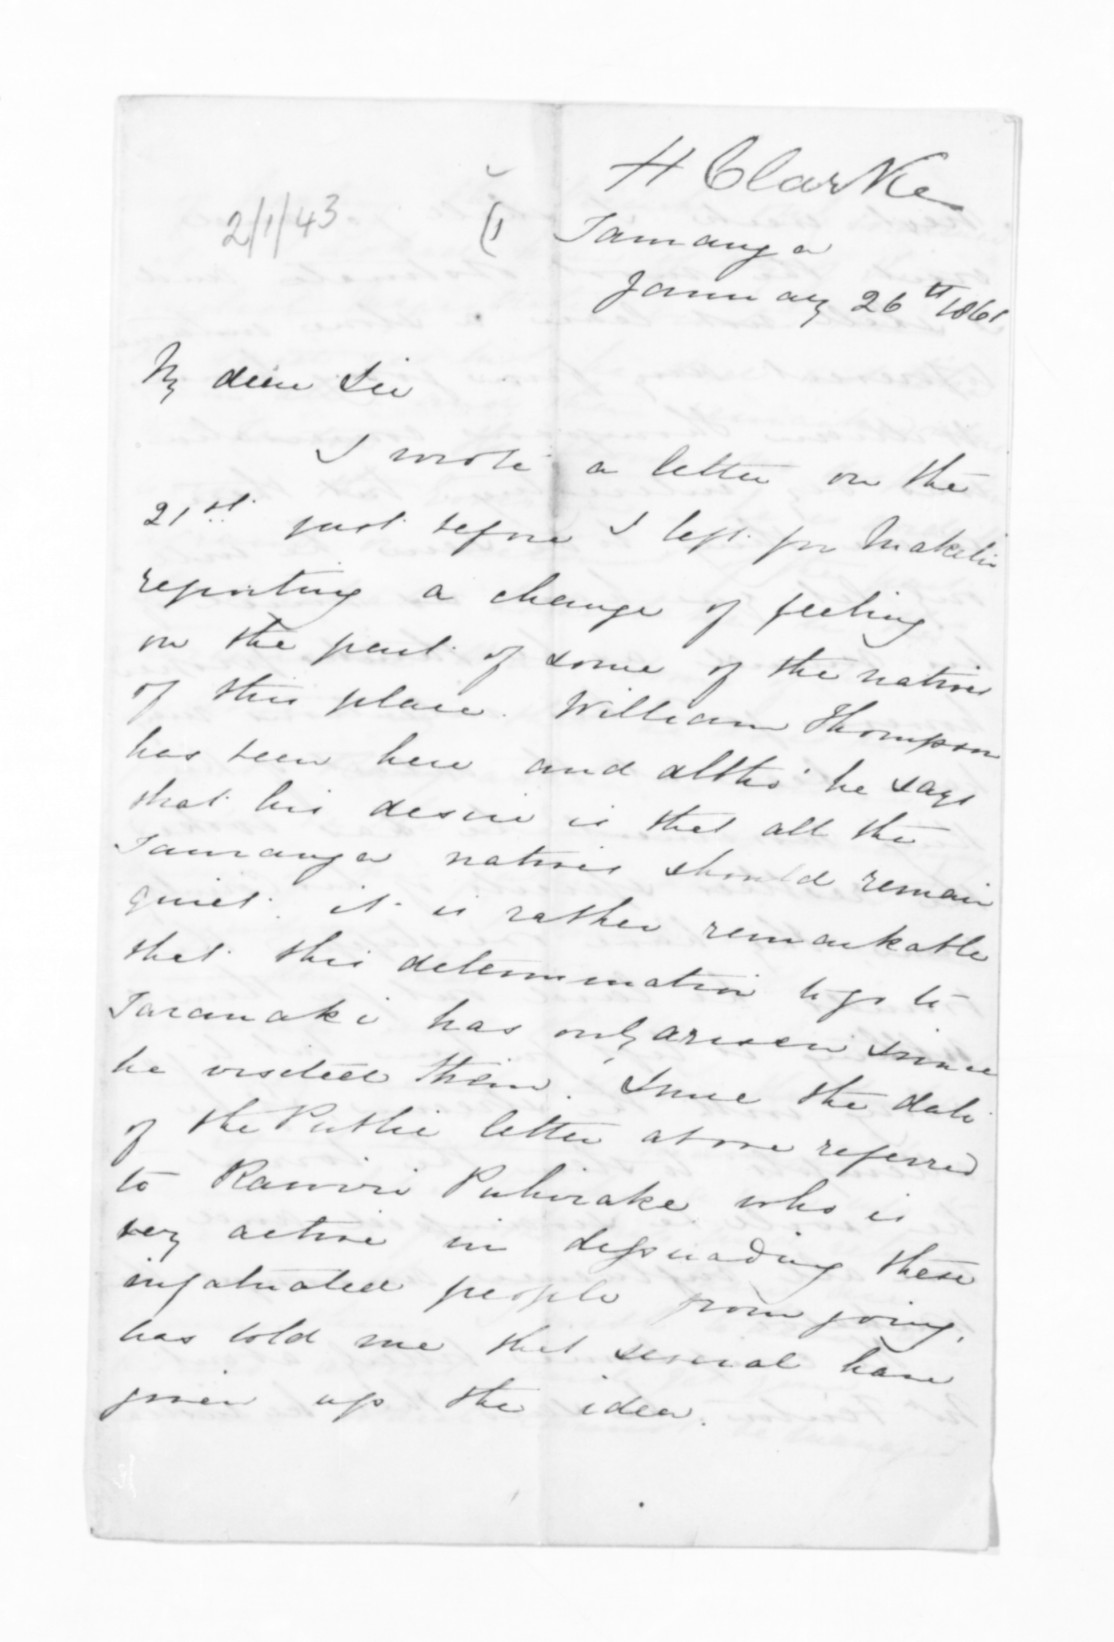 H Clarke
2/1/43
(1
Tauranga
January 26th 1861
My dear Sir
I wrote a letter on the
21st. just before I left for Maketu
reporting a change of feeling
on the part of some of the natives
of this place. William Thompson
has been here and altho' he says
that his desire is that all the
Tauranga natives should remain
quiet. it is rather remarkable
that this determination to go to
Taranaki has only arisen since
he visited them. Since the date
of the Public letter above referred
to Rawiri Puhirake who is
very active in dissuading these
infatuated people from going,
has told me that several have
given up the idea.